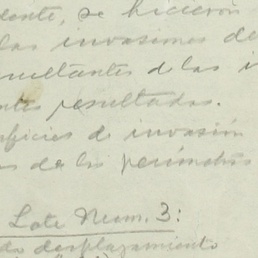 dente, se hicieron
las invasiones de
resultantes de las i
entes resultados.
oficies de invasión
as de los perímetros
Lote Núm. 3:
do desplazamiento